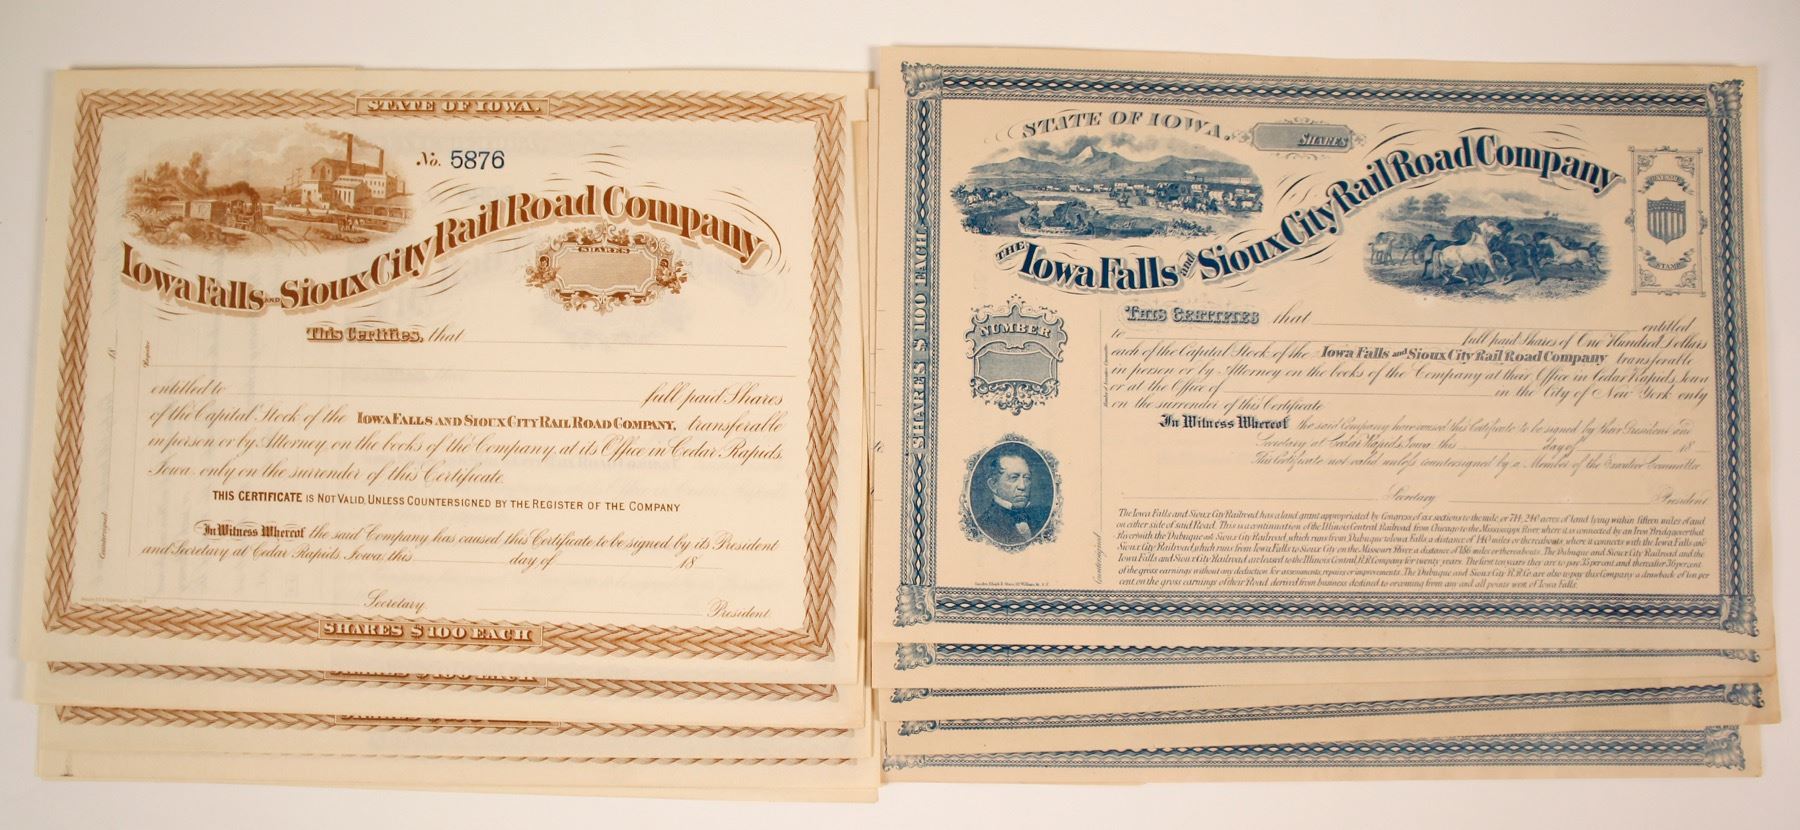 STATE OF IOWA.
No. 5876
IOWA FALLS AND SIOUX CITY RAIL ROAD COMPANY
SHARES
This Certifies, that
18
Register
entitled to full paid Shares
of the Capital Stock of the IOWA FALLS AND SIOUX CITY RAIL ROAD COMPANY, transferable
in person or by Attorney on the books of the Company at its Office in Cedar Rapids,
Iowa only on the surrender of this Certificate.
THIS CERTIFICATE IS NOT VALID, UNLESS COUNTERSIGNED BY THE REGISTER OF THE COMPANY
Countersigned
In Witness Whereof the said Company has caused this Certificate to be signed by its President
and Secretary at Cedar Rapids Iowa, this day of 18
Secretary. President.
SHARES $100 EACH
SHARES $100 EACH
STATE OF IOWA.
SHARES
THE IOWA FALLS and SIOUX CITY RAIL ROAD COMPANY
REVENUE
STAMP
SHARES $100 EACH
NUMBER
THIS CERTIFIES that entitled
to full paid Shares of One Hundred Dollars
each of the Capital Stock of the Iowa Falls and Sioux City Rail Road Company transferable
in person or by Attorney on the books of the Company at their Office in Cedar Rapids, Iowa
or at the Office of in the City of New York only
on the surrender of this Certificate
In Witness Whereof the said Company have caused this Certificate to be signed by their President and
Secretary at Cedar Rapids, Iowa this day of 18
This Certificate not valid unless countersigned by a Member of the Executive Committee
Secretary President
Countersigned
The Iowa Falls and Sioux City Railroad has a land grant appropriated by Congress of six sections to the mile, or 714,240 acres of land lying within fifteen miles of and
on either side of said Road. This is a continuation of the Illinois Central Railroad from Chicago to the Mississippi River where it is connected by an Iron Bridge over that
River with the Dubuque and Sioux City Railroad, which runs from Dubuque to Iowa Falls a distance of 140 miles or thereabouts, where it connects with the Iowa Falls and
Sioux City Railroad, which runs from Iowa Falls to Sioux City on the Missouri River a distance of 186 miles or thereabouts. The Dubuque and Sioux City Railroad and the
Iowa Falls and Sioux City Railroad are leased to the Illinois Central R.R. Company for twenty years. The first ten years they are to pay 35 percent and thereafter 36 percent
of the gross earnings without any deduction for assessments, repairs or improvements. The Dubuque and Sioux City R.R. Co. are also to pay this Company a drawback of ten per
cent on the gross earnings of their Road derived from business destined to or coming from any and all points west of Iowa Falls.